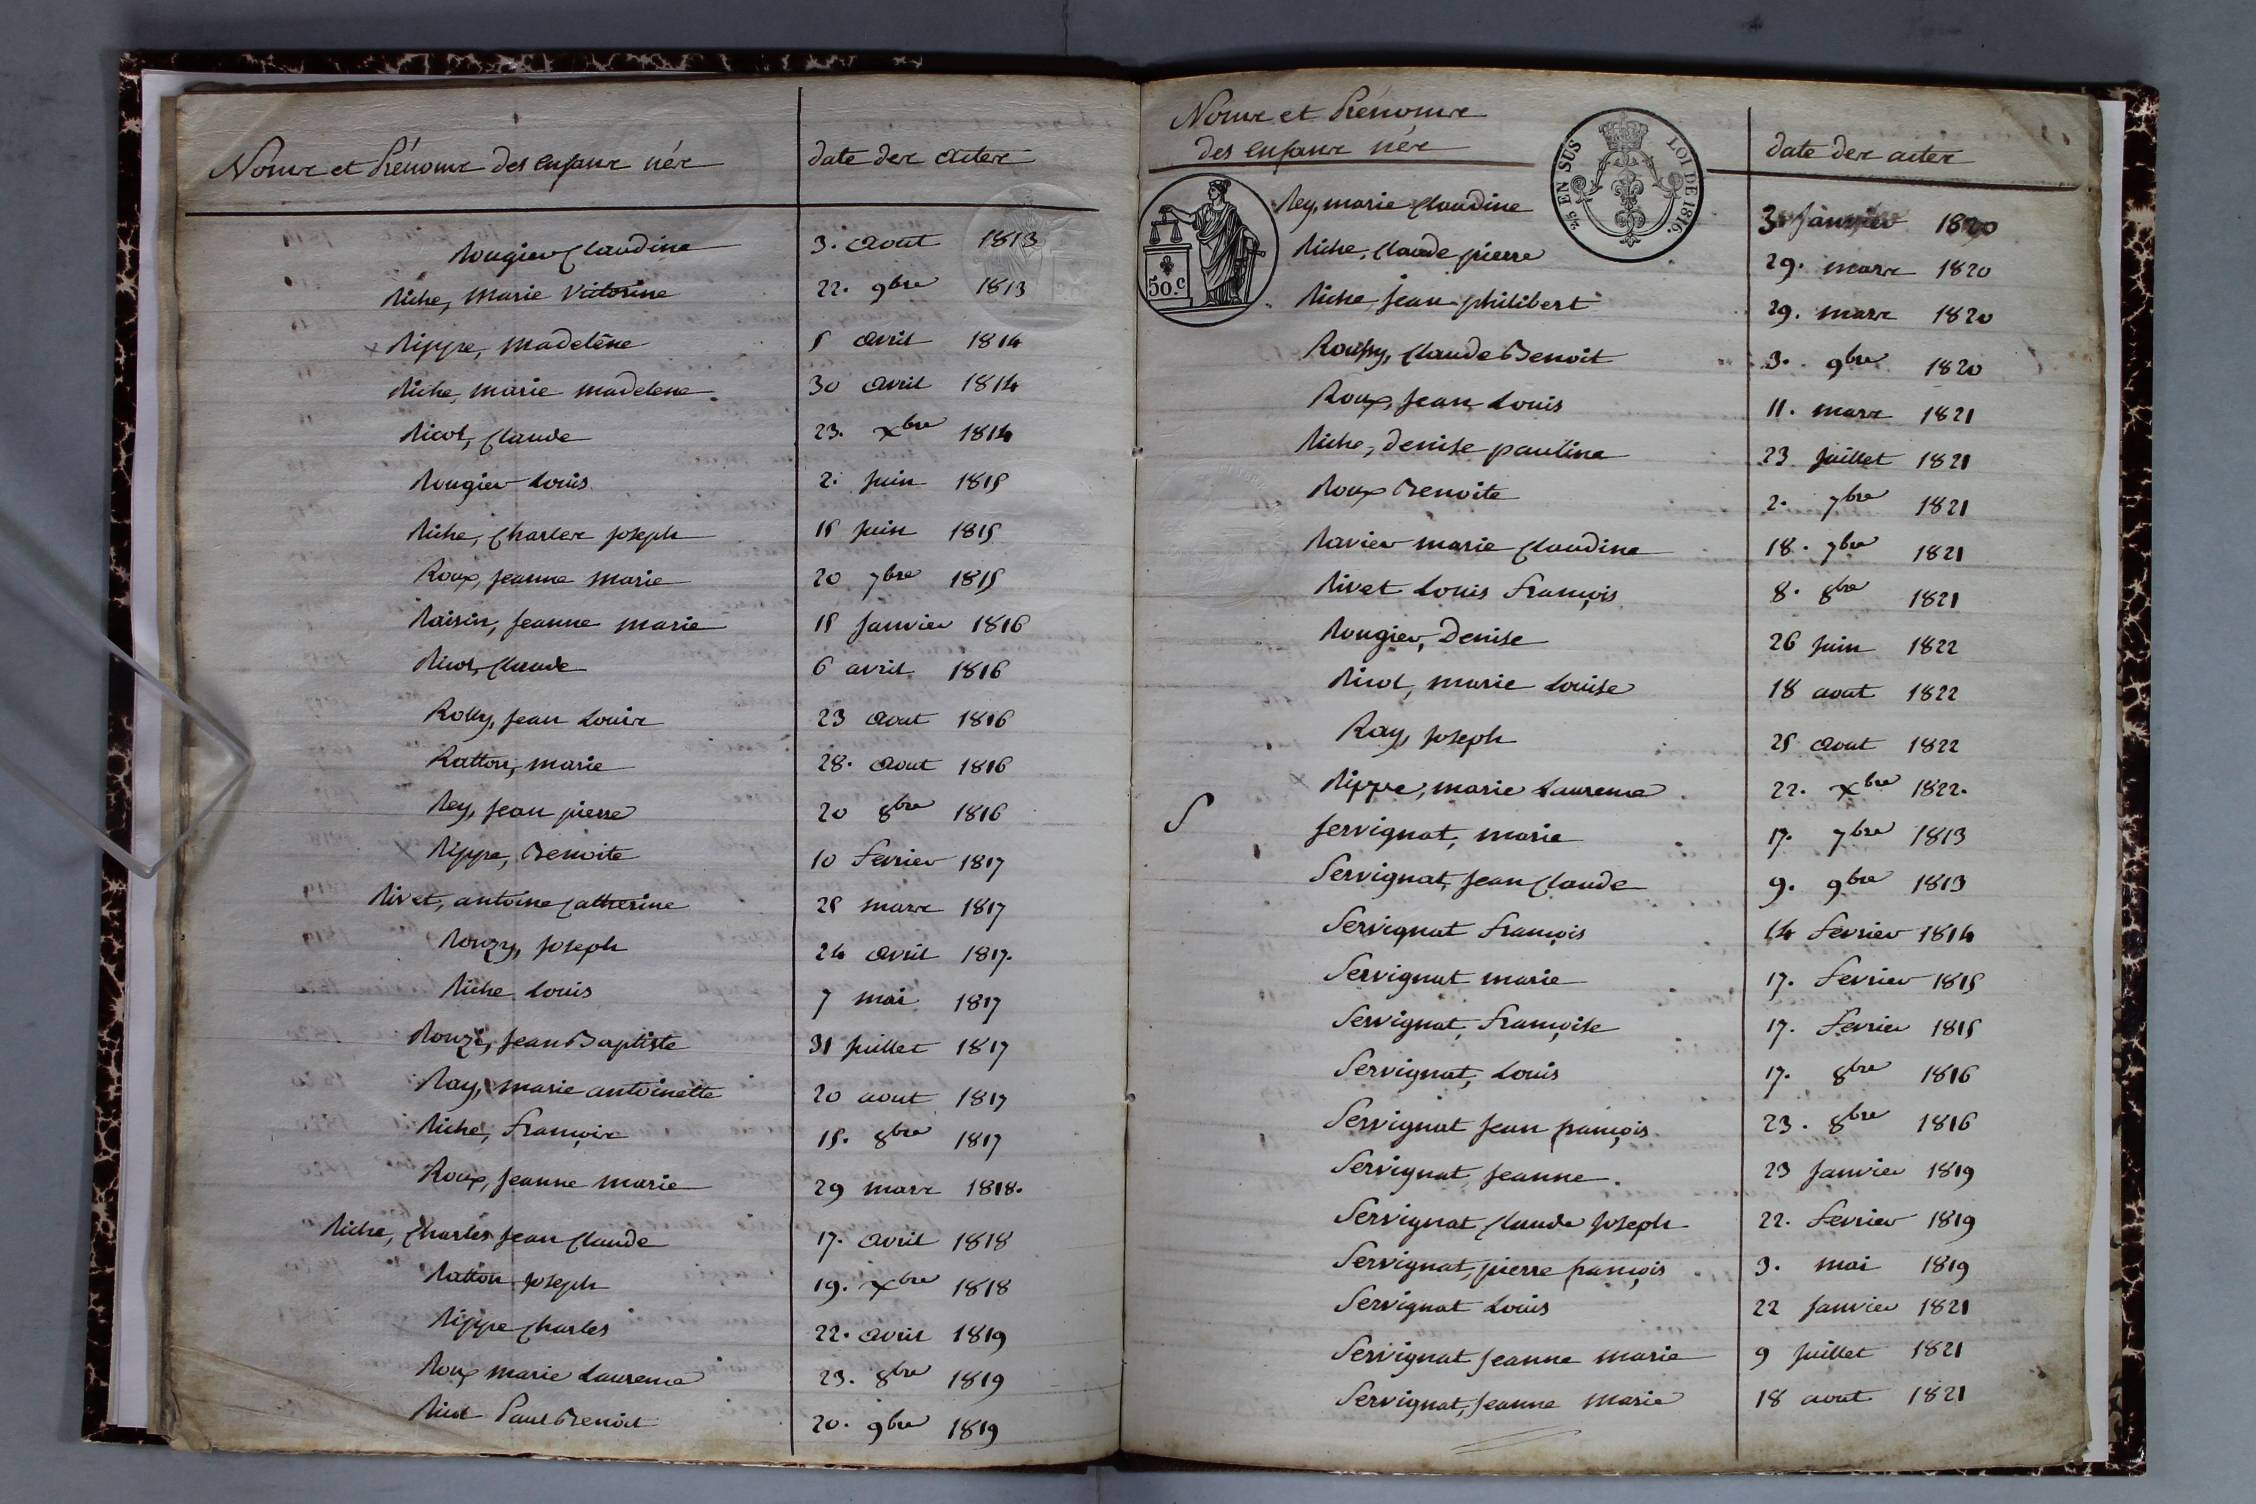 Noms et Prénoms des enfans nés date des actes
Rougier Claudine 3. Aout 1813
Riche, Marie Victorine 22. 9bre 1813
x Rippe, Madelène 5 avril 1814
Riche, marie madelene 30 avril 1814
Nicot, Claude 23. xbre 1814
Rougier Louis 2. juin 1815
Riche, Charles joseph 15 juin 1815
Roux, jeanne marie 20 7bre 1815
Raisin, jeanne marie 15 janvier 1816
Ricot, Claude 6 avril 1816
Rolly, jean Louis 23 aout 1816
Ratton, marie 28. aout 1816
Rey, jean pierre 20 8bre 1816
x Rippe, Benoite 10 fevrier 1817
Rivet, antoine Catherine 25 mars 1817
Rouzy, joseph 24 avril 1817.
Riche Louis 7 mai 1817
Rouzé, jean Baptiste 31 juillet 1817
Ray, marie antoinette 20 aout 1817
Riche, François 15. 8bre 1817
Roux, jeanne marie 29 mars 1818.
Riche, Charles jean Claude 17. avril 1818
Ratton joseph 19. xbre 1818
x Rippe Charles 22. avril 1819
Roux marie Laurence 23. 8bre 1819
Ricot Paul Benoit 20. 9bre 1819
Noms et Prénoms
des enfans nés date des actes
2/5 EN SUS LOI DE 1816.
50.c
Rey, marie Claudine 31 janvier 1820
Riche, Claude pierre 29. mars 1820
Riche, jean philibert 29. mars 1820
Claude Benoit 3. 9bre 1820
Roux, jean Louis 11. mars 1821
Riche, denise pauline 23 juillet 1821
Roux Benoite 2. 7bre 1821
Ravier marie Claudine 18. 7bre 1821
Rivet Louis François 8. 8bre 1821
Rougier, Denise 26 juin 1822
Ricot, marie Louise 18 aout 1822
Ray, joseph 25 aout 1822
x Rippe, marie Laurence 22. xbre 1822.
S Servignat, marie 17. 7bre 1813
Servignat, jean Claude 9. 9bre 1813
Servignat François 14 fevrier 1814
Servignat marie 17. fevrier 1815
Servignat, Françoise 17. fevrier 1815
Servignat, Louis 17. 8bre 1816
Servignat jean françois 23. 8bre 1816
Servignat, jeanne. 23 janvier 1819
Servignat, Claude joseph 22. fevrier 1819
Servignat, pierre françois 3. mai 1819
Servignat Louis 22 janvier 1821
Servignat jeanne marie 9 juillet 1821
Servignat, jeanne Marie 18 aout 1821